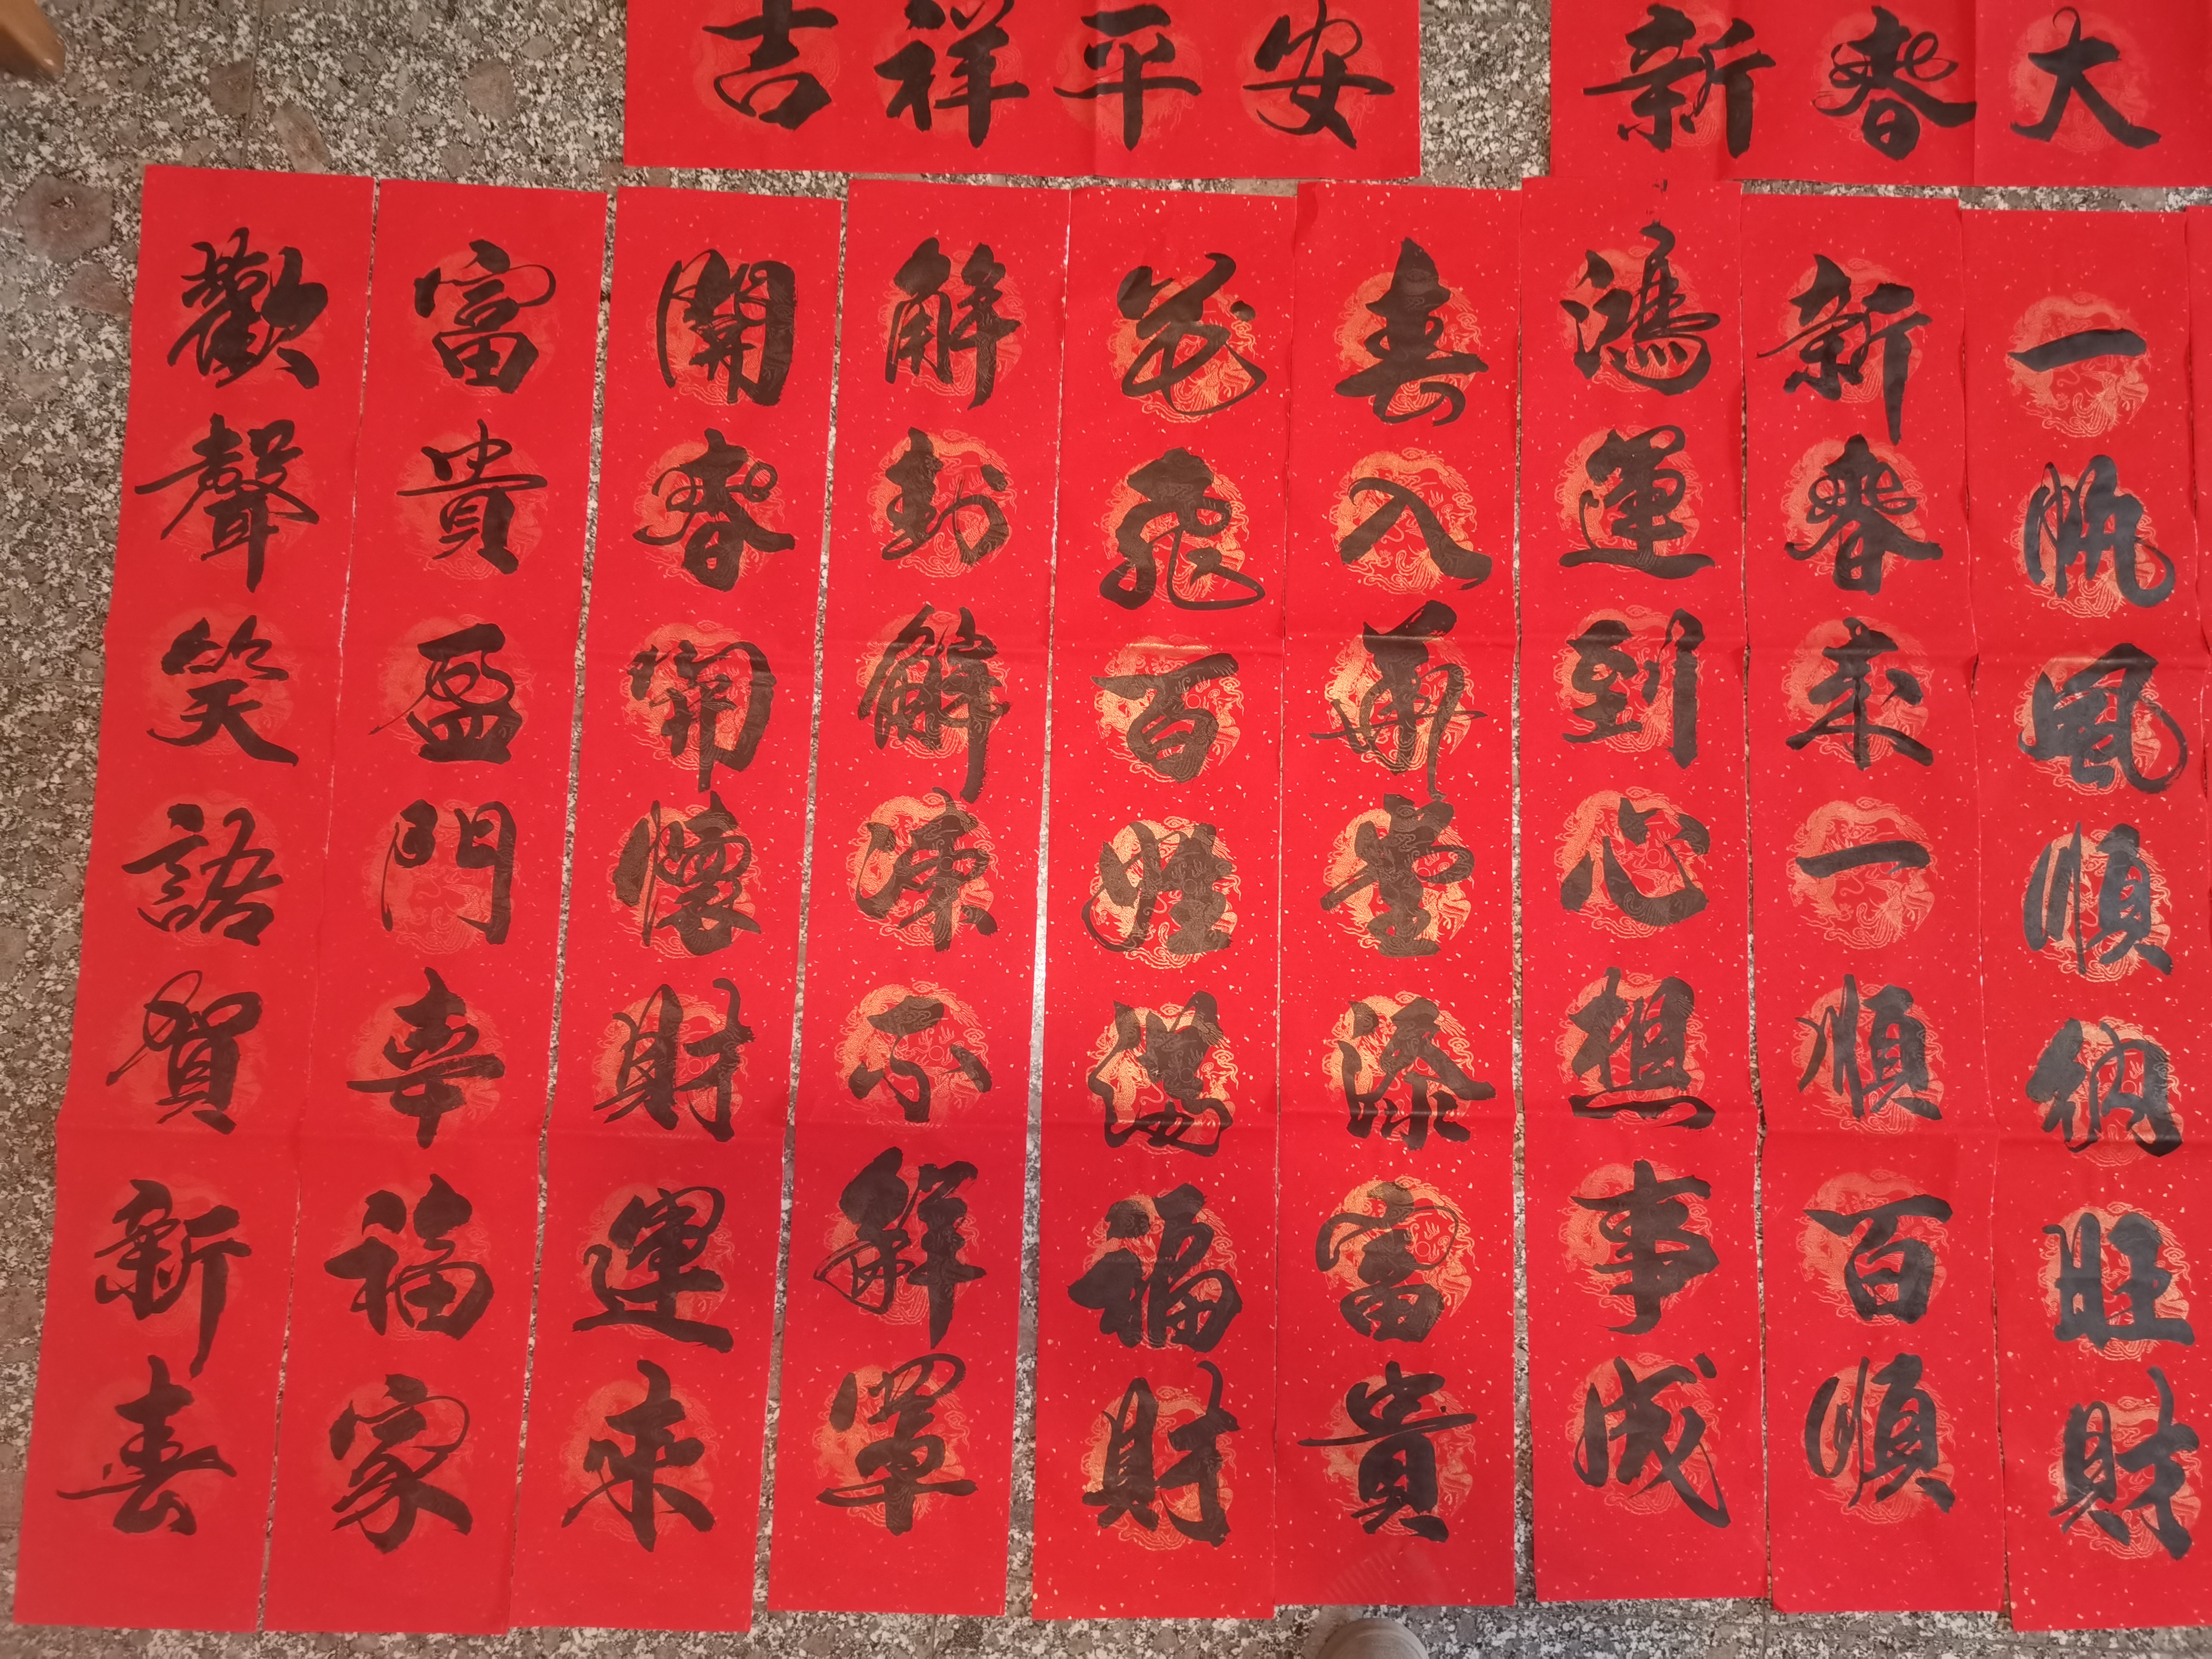 吉祥平安
新春大
一帆風順納旺財
新春來一順百順
鴻運到心想事成
喜入華堂添富貴
花飛百姓滿福財
解封解凍不解罩
開春開懷財運來
富貴盈門幸福家
歡聲笑語賀新喜